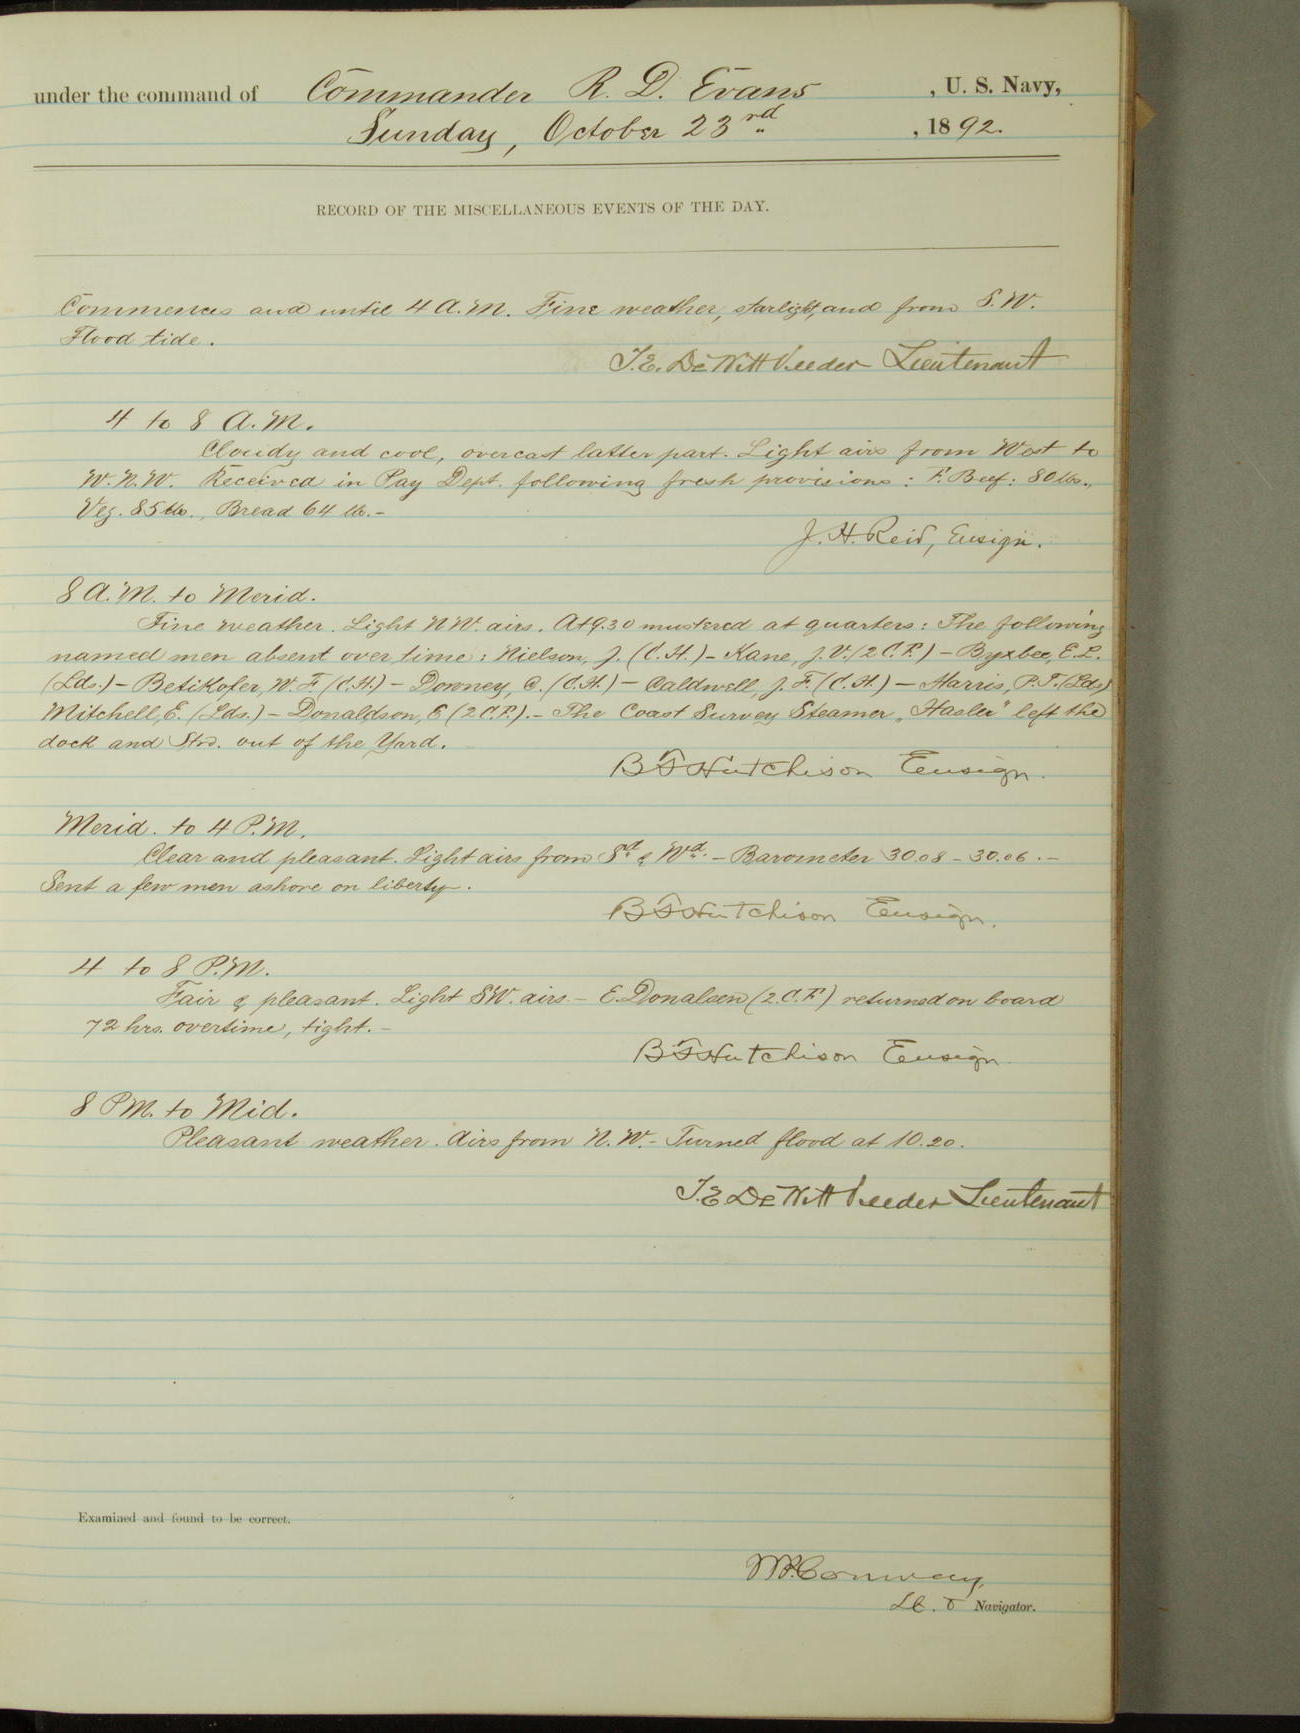 under the command of Commander R. D. Evans, U. S. Navy,
Sunday, October 23rd, 1892.
RECORD OF THE MISCELLANEOUS EVENTS OF THE DAY.
Commences and until 4 A.M. Fine weather, starlight, and from S.W.
Flood tide.
T.E. DeWitt Veeder Lieutenant
4 to 8 A.M.
Cloudy and cool, overcast latter part. Light airs from West to
W.N.W. Received in Pay Dept. following fresh provisions: F. Beef: 80 lbs.,
Veg. 85 lb., Bread 64 lb.-
J. H. Reid, Ensign.
8 A.M. to Merid.
Fine weather. Light NW. airs. At 9.30 mustered at quarters: The following
named men absent over time: Nielson, J. (C.H.) - Kane, J.V. (2 C.F.) - Byxbee, E.L.
(Lds.) - Betikofer, W.F. (C.H.) - Downey, C. (C.H.) - Caldwell, J.F. (C.H.) - Harris, P.T. (Lds)
Mitchell, E. (Lds.) - Donaldson, E (2 C.F.). - The Coast Survey Steamer „Hasler" left the
dock and Std. out of the Yard.
B F Hutchison Ensign.
Merid. to 4 P.M.
Clear and pleasant. Light airs from Sd & Wd. - Barometer 30.08 - 30.06. -
Sent a few men ashore on liberty.
B F Hutchison Ensign.
4 to 8 P.M.
Fair & pleasant. Light SW. airs. - E. Donalsen (2.C.F.) returned on board
72 hrs. overtime, tight. -
B F Hutchison Ensign
8 P.M. to Mid.
Pleasant weather. Airs from N.W. - Turned flood at 10.20.
T.E DeWitt Veeder Lieutenant
Examined and found to be correct.
W.P. Conway,
Lt. & Navigator.